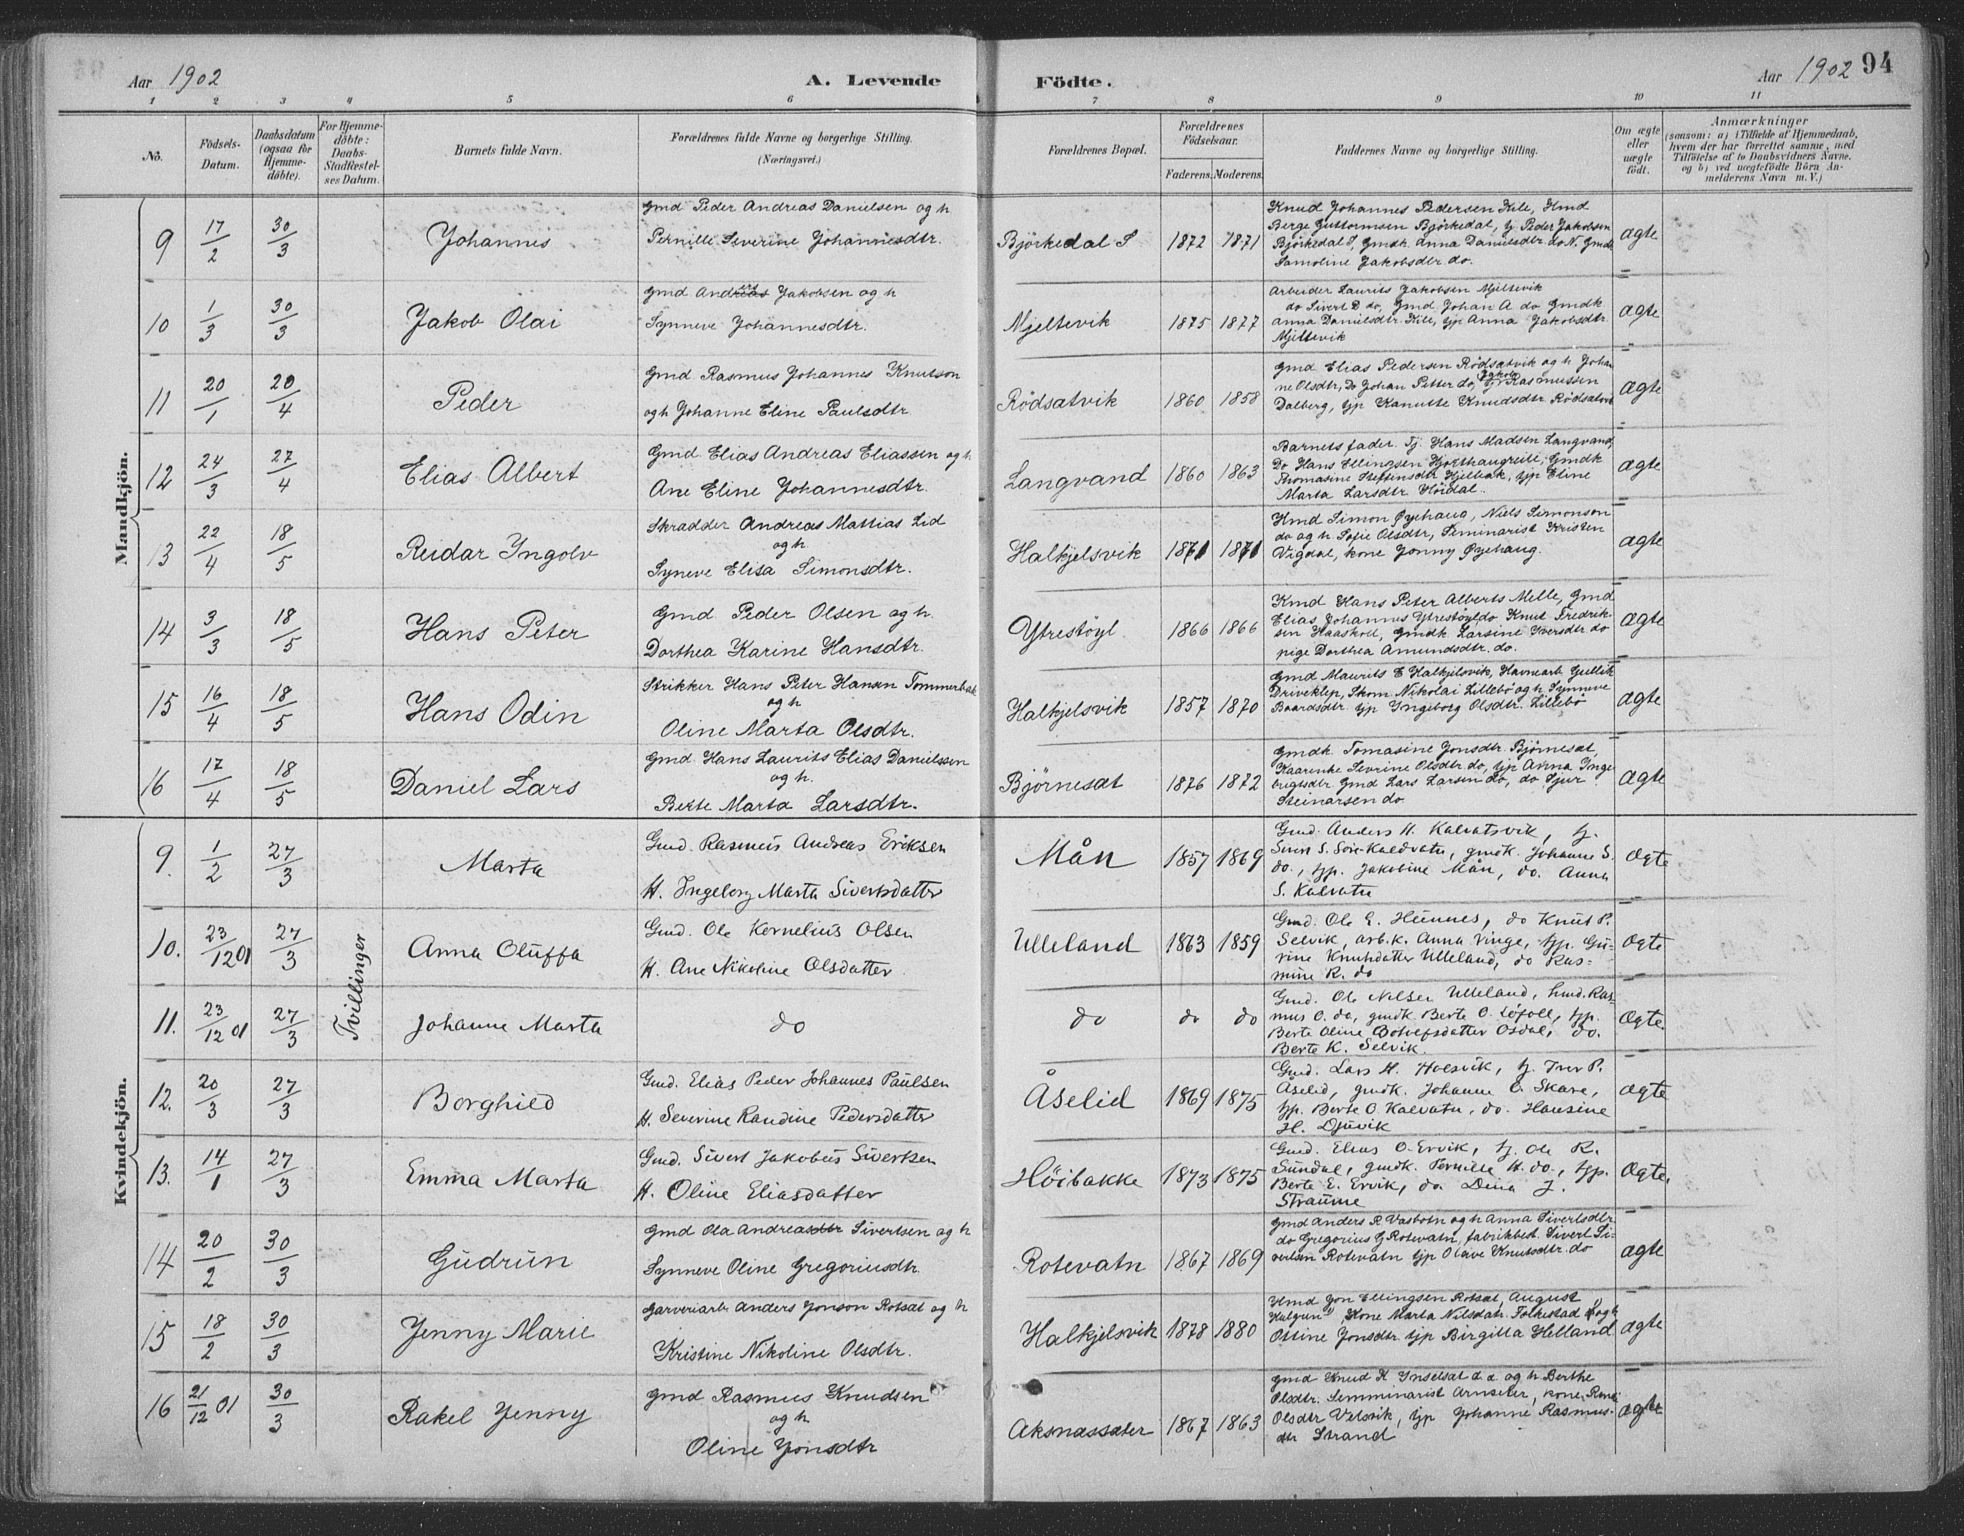 Aar 1902
A. Levende
Födte.
Aar 1902 94
1 2 3 4 5 6 7 8 9 10 11
No.
Födsels-
Datum.
Daabsdatum
(ogsaa for
Hjemme-
döbte).
For Hjemme-
döbte:
Daabs-
Stadfæstel-
ses Datum.
Barnets fulde Navn.
Forældrenes fulde Navne og borgerlige Stilling.
(Næringsvei.)
Forældrenes Bopæl.
Forældrenes
Födselsaar.
Faderens. Moderens.
Faddernes Navne og borgerlige Stilling.
Om ægte
eller
uægte
født.
Anmærkninger
(saasom: a) i Tilfælde af Hjemmedaab,
hvem der har forrettet samme, med
Tilföielse af to Daabsvidners Navne,
og b) ved uægtefödte Börn An-
melderens Navn m. V.)
Mandkjön.
9 17/2 30/3 Johannes
Gmd Peder Andreas Danielsen og h
Pernille Severine Johannesdtr.
Björkedal S 1872 1871
Knud Johannes Pedersen Kile, Kmd
Berge Guttormsen Bjørkedal, Tj Peder Jakobsen
Bjørkedal S, Gmdk. Anna Danielsdtr do N. Gmdk
Samoline Jakobsdtr do.
ægte
10 1/3 30/3 Jakob Olai
Gmd Andreas Jakobsen og h
Synneve Johannesdtr.
Mjeltevik 1875 1877
Arbeider Laurits Jakobsen Mjeltevik
do Sivert D do, Gmd Johan A do Gmdk
Anna Danielsdtr Kile, tjp Anna Jakobsdtr
Mjeltevik
ægte
11 20/1 20/4 Peder
Gmd Rasmus Johannes Knutson
og h Johanne Eline Paulsdtr
Rödsatvik 1860 1858
Gmd Elias Pedersen Rödsatvik og h Johan
ne Olsdtr, Do Johan Petter do, Tj Jakob Rasmussen
Dalberg, tjp Kanutte Knudsdtr Rödsatvik
ægte
12 24/3 27/4 Elias Albert
Gmd Elias Andreas Eliassen og h
Ane Eline Johannesdtr.
Langvand 1860 1863
Barnets fader. Tj. Hans Madsen Langvand
Do Hans Ellingsen Hjorthaugreite, Gmdk
Thomasine Steffensdtr Hjelbak, tjp Eline
Marta Larsdtr Höidal.
ægte
13 22/4 18/5 Reidar Ingolv
Skradder Andreas Mattias Lid
og h
Syneve Elisa Simonsdtr.
Halkjelsvik 1871 1871
Kmd Simon Øyehaug, Niels Simonson
do og h Sofie Olsdtr, Seminarist Kristen
Vigdal, kone Jonny Øyehaug.
ægte
14 3/3 18/5 Hans Peter
Gmd Peder Olsen og h
Dorthea Karine Hansdtr.
Ytrestöyl. 1866 1866
Kmd Hans Peter Alberts Melle, Gmd
Elias Johannes Ytrestöyl do Knut Fredrik-
sen Kaaskold, Gmdk Larsine Iversdtr do
pige Dorthea Amundsdtr. do.
ægte
15 16/4 18/5 Hans Odin
Strikker Hans Peter Hansen Tommerbak
og h
Oline Marta Olsdtr.
Halkjelsvik 1857 1870
Gmd Maurits E Halkjelsvik, Havnearb Gullik
Driveklep, Skom Nikolai Lillebö og h Synneve
Baardsdtr tjp Ingeborg Olsdtr. Lillebö
ægte
16 17/4 18/5 Daniel Lars
Gmd Hans Laurits Elias Danielssen
og h.
Berte Marta Larsdtr.
Björnesat 1876 1872
Gmdk Tomasine Jonsdtr Björnesat,
Kaarenke Sevrine Olsdtr do, tjp Anna Inge
brigtsdtr Gmd Lars Larsen do, do Sjur
Steinarsen do
ægte
Kvindekjön.
9. 1/2 27/3 Marta
Gmd. Rasmus Andreas Eriksen
H. Ingeborg Marta Sivertsdatter
Mån 1857 1869
Gmd. Anders H. Kalvatsvik, tj.
Simon S. Söre-Kaldvatn, gmdk. Johanne S.
do., tjp. Jakobine Mån, do. Anna
S. Kalvatn
ægte
10. 23/12 01 27/3 Tvillinger Anna Oluffa
Gmd. Ole Kornelius Olsen
H. Ane Nikoline Olsdatter
Ulleland 1863 1859
Gmd. Ole E. Hunnes, do Knut P.
Selvik, arb.k. Anna Vinge, tjp. Gu-
rine Knutsdatter Ulleland, do Ras-
mine R. do
ægte
11. 23/12 01 27/3 Johanne Marta
do
do do do
Gmd. Ole Nilsen Ulleland, Gmd. Ras-
mus O. do, gmdk Berte O. Löfoll, tjp.
Berte Oline Botolfsdatter Osdal, do.
Berte K. Selvik.
ægte
12. 20/3 27/3 Borghild
Gmd. Elias Peder Johannes Paulsen
H. Severine Randine Pedersdatter
Åselid 1869 1875
Gmd. Lars H. Holsvik, tj. Iver P.
Åselid, gmdk. Johanne O. Skare,
tjp. Berte O. Kalvatn, do. Hansine
H. Djuvik
ægte
13. 14/1 27/3 Emma Marta
Gmd. Sivert Jakobus Sivertsen
H. Oline Eliasdatter
Höibakke 1873 1875
Gmd. Elias O. Ervik, tj. Ole R.
Sundal, gmdk. Pernille H. do., tjp.
Berte E. Ervik, do Dina J.
Straume
ægte.
14 20/2 30/3 Gudrun
Gmd Ola Andreasdtr Sivertsen og h
Synneve Oline Gregoriusdtr
Rotevatn 1867 1869
Gmd Anders R Vasbotn og h Anna Sivertsdtr
do Gregorius G Rotevatn, fabrikbest. Sivert Si-
vertsen Rotevatn tjp Olave Knutsdtr. do
ægte
15 18/2 30/3 Jenny Marie
Garveriarb Anders Jonson Rotsat og h
Kristine Nikoline Olsdtr.
Halkjelsvik 1878 1880
Kmd Jon Ellingsen Rotsat, August
Kone Marta Nilsdatr. Folkestad og h
Ottine Jonsdtr tjp Birgitta Helland
ægte
16 21/12 01 30/3 Rakel Jenny
Gmd Rasmus Knudsen
og h
Oline Jonsdtr
Aksnæssæter 1867 1863
Gmd Knud K Ynselsat d æ og h Berthe
Olsdtr. Semminarist Arnseter, kone
Olsdtr Velsvik, tjp Johanne Rasmus-
dtr Strand
ægte